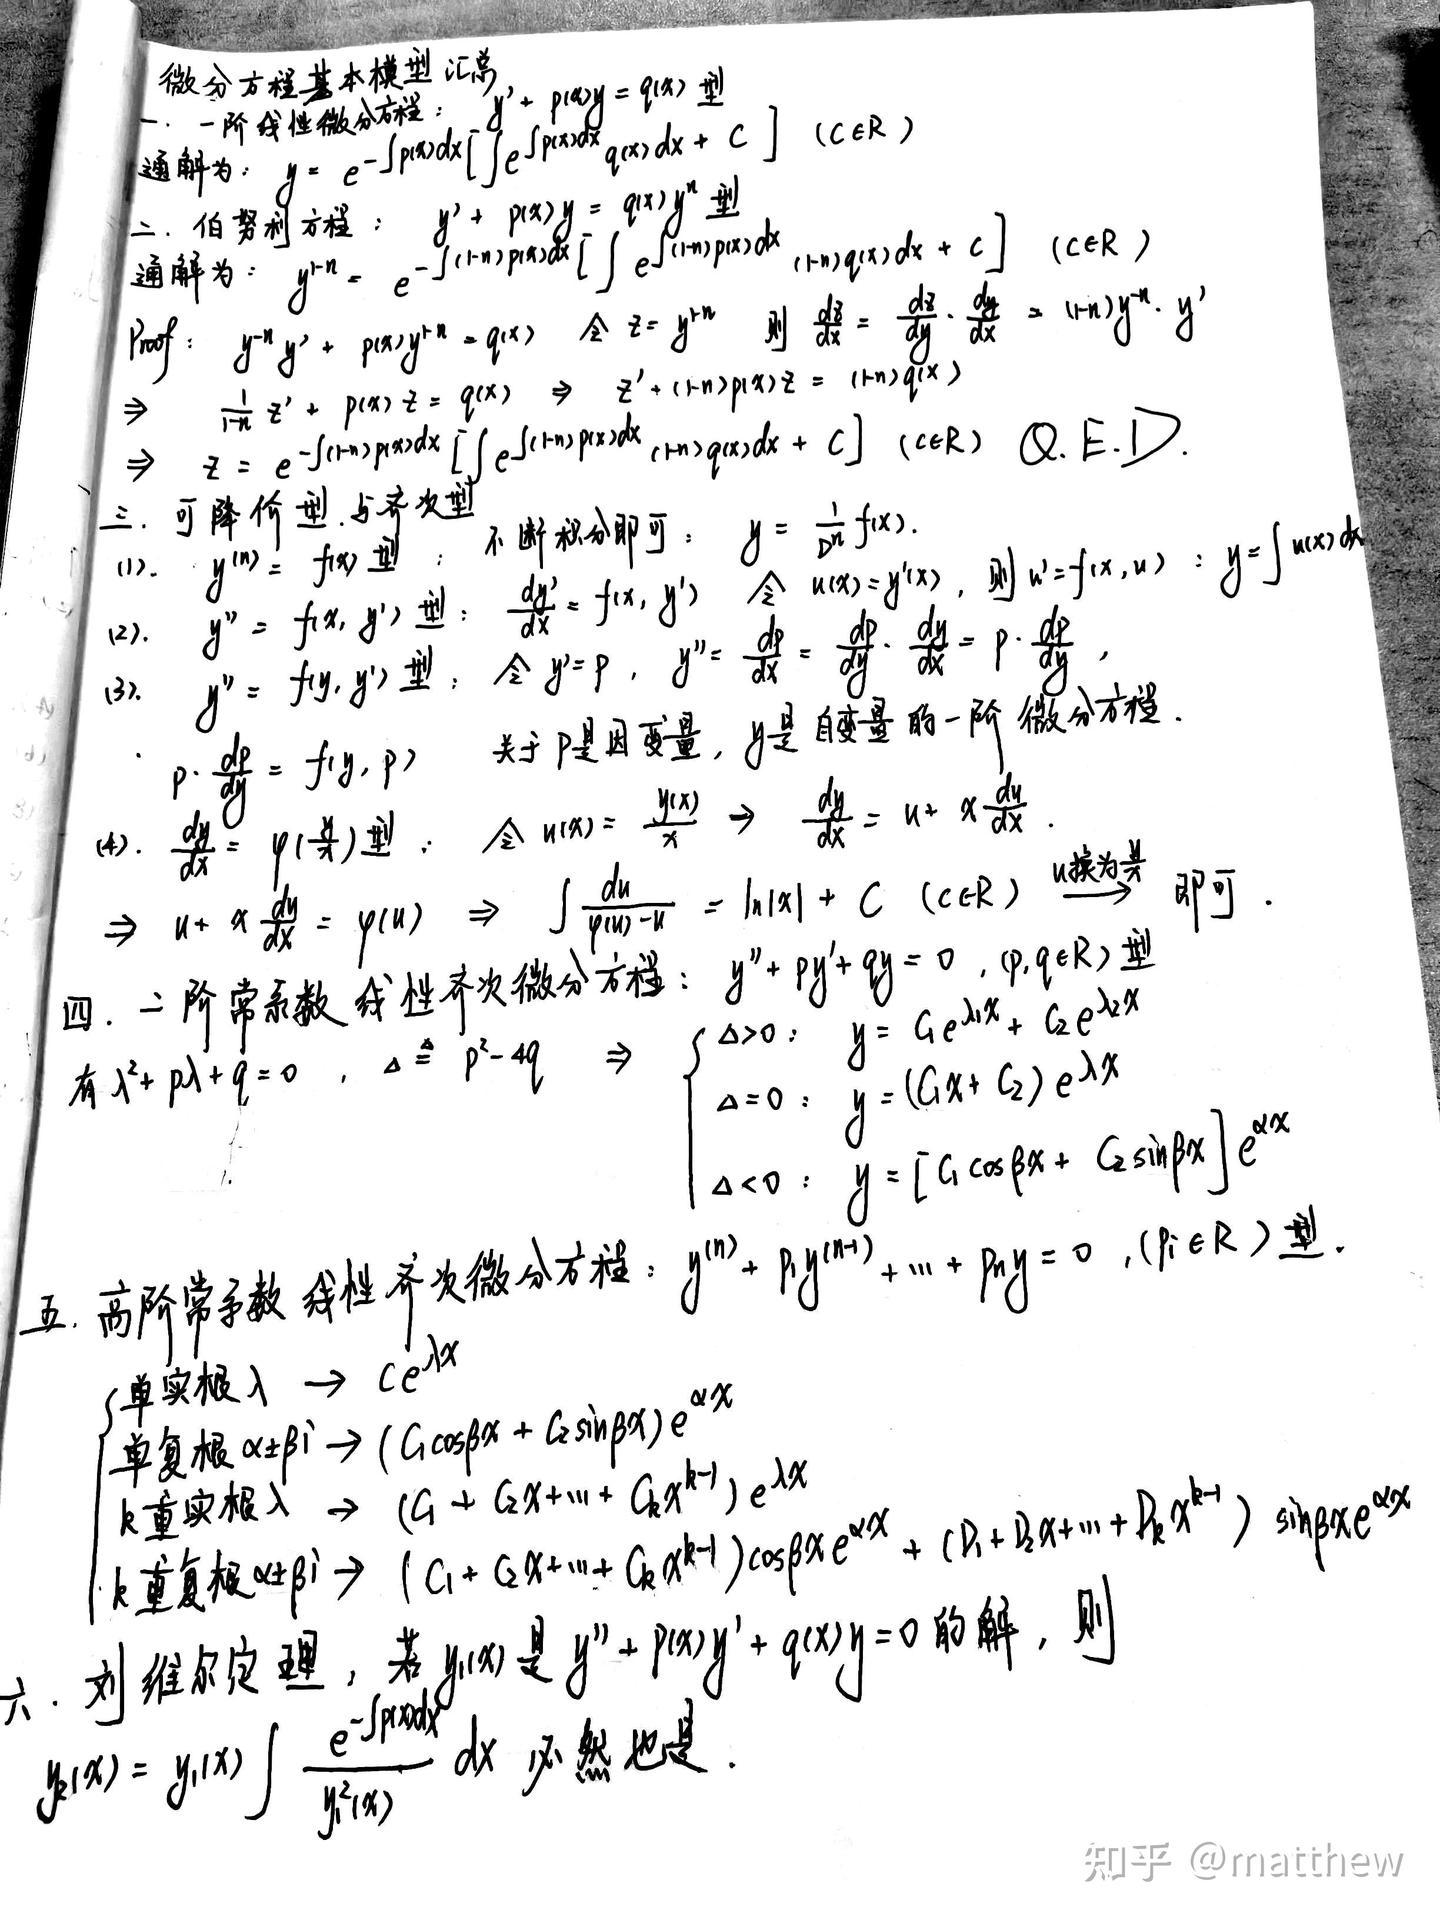 微分方程基本模型汇总
一. 一阶线性微分方程: y' + p(x)y = q(x) 型
通解为: y = e^{-∫p(x)dx}[∫e^{∫p(x)dx} q(x)dx + C] (C∈R)
二. 伯努利方程: y' + p(x)y = q(x)y^n 型
通解为: y^{1-n} = e^{-∫(1-n)p(x)dx}[∫e^{∫(1-n)p(x)dx} (1-n)q(x)dx + C] (C∈R)
Proof: y^{-n}y' + p(x)y^{1-n} = q(x) 令 z = y^{1-n} 则 dz/dx = dz/dy · dy/dx = (1-n)y^{-n} · y'
⇒ 1/(1-n) z' + p(x)z = q(x) ⇒ z' + (1-n)p(x)z = (1-n)q(x)
⇒ z = e^{-∫(1-n)p(x)dx}[∫e^{∫(1-n)p(x)dx} (1-n)q(x)dx + C] (C∈R) Q.E.D.
三. 可降价型与齐次型
(1). y^{(n)} = f(x) 型: 不断积分即可: y = 1/D^n f(x).
(2). y'' = f(x, y') 型: dy'/dx = f(x, y') 令 u(x) = y'(x), 则 u' = f(x, u) : y = ∫u(x)dx
(3). y'' = f(y, y') 型: 令 y' = p, y'' = dp/dx = dp/dy · dy/dx = p · dp/dy,
p · dp/dy = f(y, p) 关于p是因变量, y是自变量的一阶微分方程.
(4). dy/dx = φ(y/x) 型: 令 u(x) = y(x)/x → dy/dx = u + x du/dx.
⇒ u + x du/dx = φ(u) ⇒ ∫ du/(φ(u)-u) = ln|x| + C (C∈R) u换为y/x → 即可.
四. 二阶常系数线性齐次微分方程: y'' + py' + qy = 0, (p,q∈R) 型
有 λ² + pλ + q = 0, Δ ≜ p² - 4q ⇒ { Δ>0: y = C₁e^{λ₁x} + C₂e^{λ₂x}
Δ=0: y = (C₁x + C₂)e^{λx}
Δ<0: y = [C₁cosβx + C₂sinβx]e^{αx}
五. 高阶常系数线性齐次微分方程: y^{(n)} + p₁y^{(n-1)} + … + pₙy = 0, (pᵢ∈R) 型.
单实根λ → Ce^{λx}
单复根α±βi → (C₁cosβx + C₂sinβx)e^{αx}
k重实根λ → (C₁ + C₂x + … + Cₖx^{k-1})e^{λx}
k重复根α±βi → (C₁ + C₂x + … + Cₖx^{k-1})cosβxe^{αx} + (D₁ + D₂x + … + Dₖx^{k-1})sinβxe^{αx}
六. 刘维尔定理, 若y₁(x)是y'' + p(x)y' + q(x)y = 0的解, 则
y₂(x) = y₁(x)∫ e^{-∫p(x)dx}/y₁²(x) dx 必然也是.
知乎 @matthew